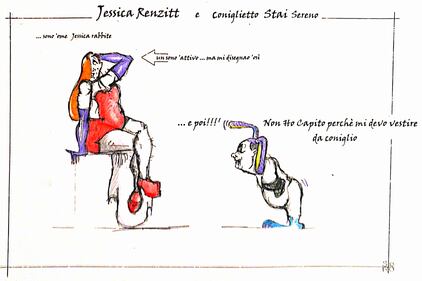 Jessica Renzitt e Coniglietto Stai Sereno
... sono 'ome Jessica rabbite
un sono 'attivo ... ma mi disegnao 'osì
... e poi!!!!
Non Ho Capito perchè mi devo vestire
da coniglio